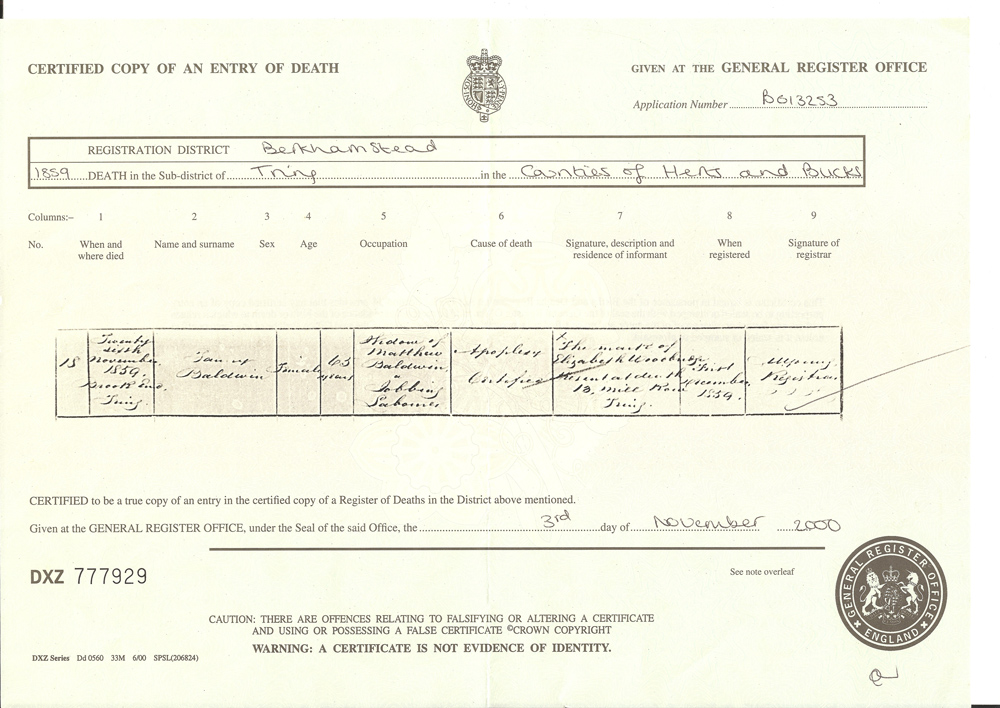 CERTIFIED COPY OF AN ENTRY OF DEATH
GIVEN AT THE GENERAL REGISTER OFFICE
Application Number BG13253
REGISTRATION DISTRICT Berkhamstead
1859 DEATH in the Sub-district of Tring in the Counties of Herts and Bucks
Columns:– 1 2 3 4 5 6 7 8 9
No. When and where died Name and surname Sex Age Occupation Cause of death Signature, description and residence of informant When registered Signature of registrar
18
Twenty
sixth
November
1859.
Brook End
Tring.
Baldwin
Female
65
years
Widow of
Matthew
Baldwin
a
Jobbing
Labourer
Apoplexy
Certified
The mark of
Elizabeth
Present at death
18, Mill Row
Tring.
First
December
1859.
Registrar
CERTIFIED to be a true copy of an entry in the certified copy of a Register of Deaths in the District above mentioned.
Given at the GENERAL REGISTER OFFICE, under the Seal of the said Office, the 3rd day of November 2000
DXZ 777929
See note overleaf
GENERAL REGISTER OFFICE
ENGLAND
CAUTION: THERE ARE OFFENCES RELATING TO FALSIFYING OR ALTERING A CERTIFICATE
AND USING OR POSSESSING A FALSE CERTIFICATE ©CROWN COPYRIGHT
WARNING: A CERTIFICATE IS NOT EVIDENCE OF IDENTITY.
DXZ Series Dd 0560 33M 6/00 SPSL(206824)